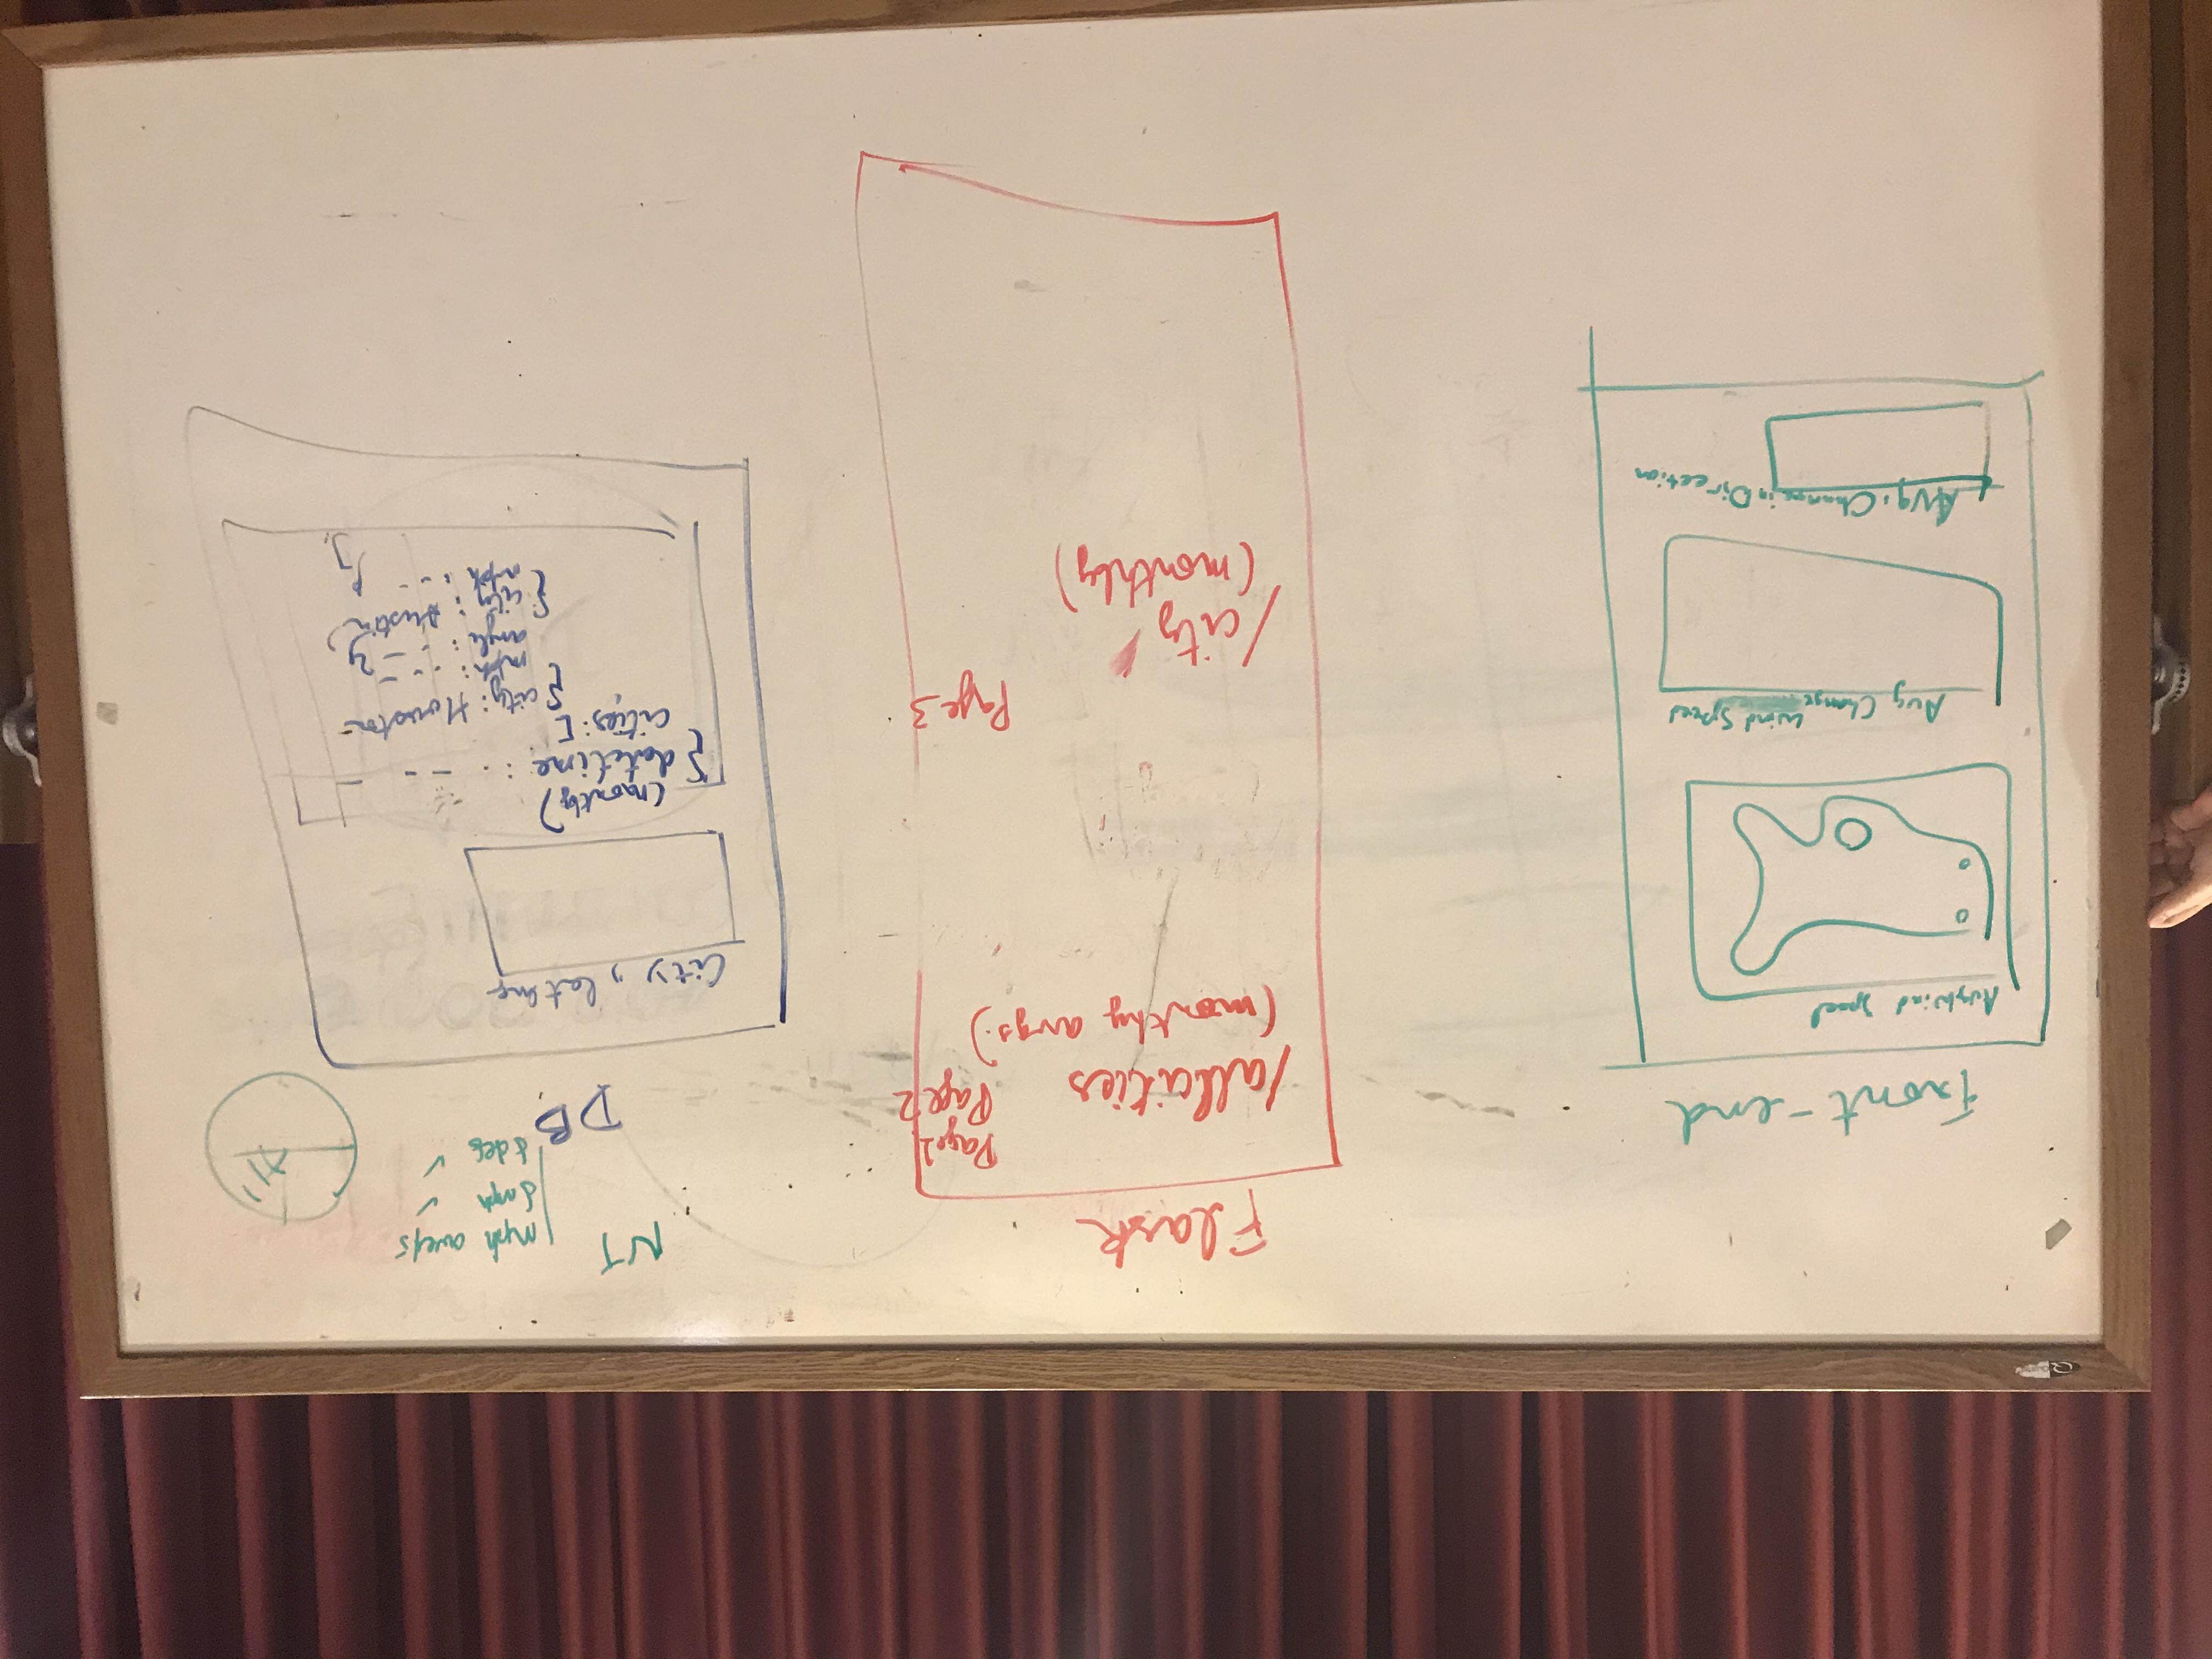 Front-end
Avg Wind Speed
Avg Change Wind Speed
Avg. Change in Direction
Flask
Page 1
Page 2
/allcities
(monthy avgs.)
Page 3
/city
(monthly)
NT
mph
δmph ✓
δdeg ✓
DB
City, latlng
(montly)
{ datetime : . - - -
cities: [
{ city: Houston
mph: . - - -
angle: . - - },
{ city: Austin
mph: - - }
],